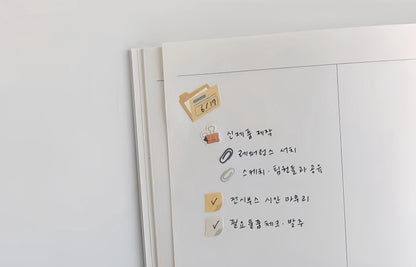 6/17
신제품 제작
레퍼런스 서치
스케치·팀원들과 공유
전시부스 시안 마무리
필요물품체크·발주